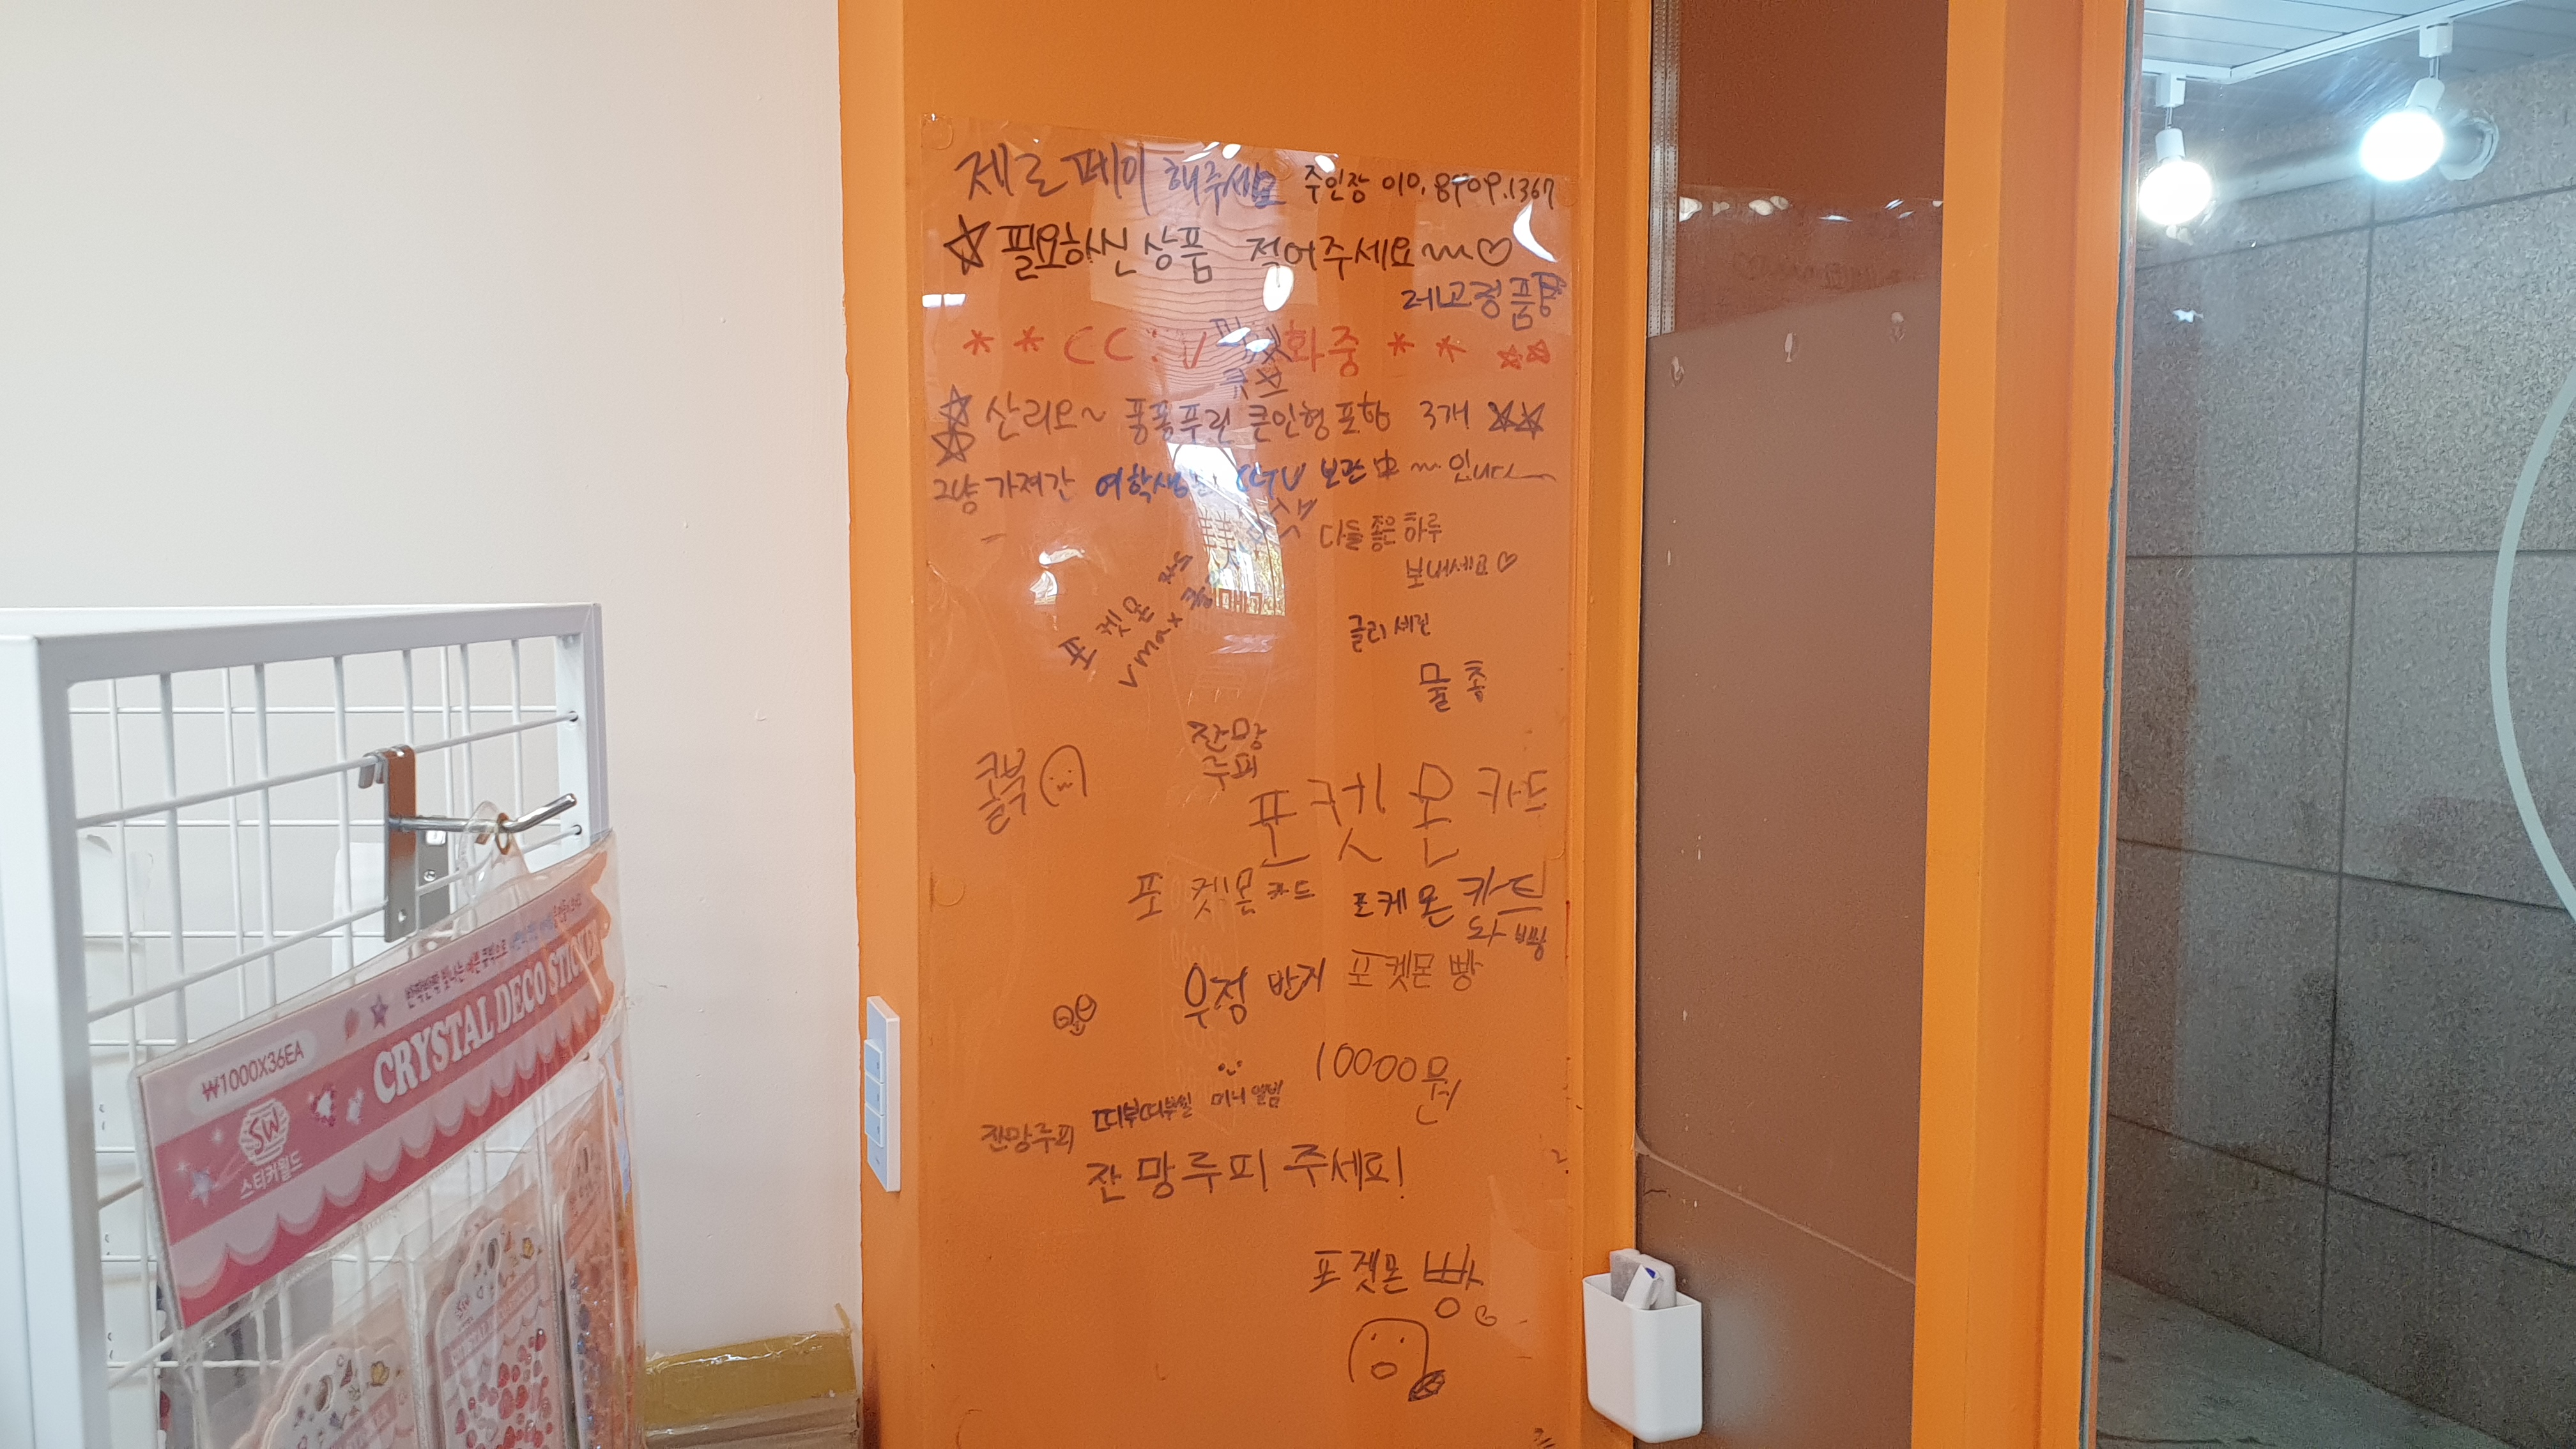 제로페이 해주세요 주인장 010.8909.1367
☆ 필요하신 상품 적어주세요~♡
레고정품
** CC 화중 ** ☆☆
☆ 산리오~ 퐁퐁푸린 큰인형 포함 3개 ☆☆
☆
그냥 가져간 여학생 CCTV 보관中~ 입니다
다들 좋은 하루
보내세요♡
포켓몬
vmax
글리세린
물총
잔망
루피
콜북
포켓몬 카드
포켓몬 카드 포케몬 카드
와 빵
우정 반지 포켓몬 빵
10000원
띠부띠부씰 미니 앨범
잔망루피
잔망루피 주세요!
포켓몬 빵
₩1000X36EA
CRYSTAL DECO STICKER
SW
스티커월드